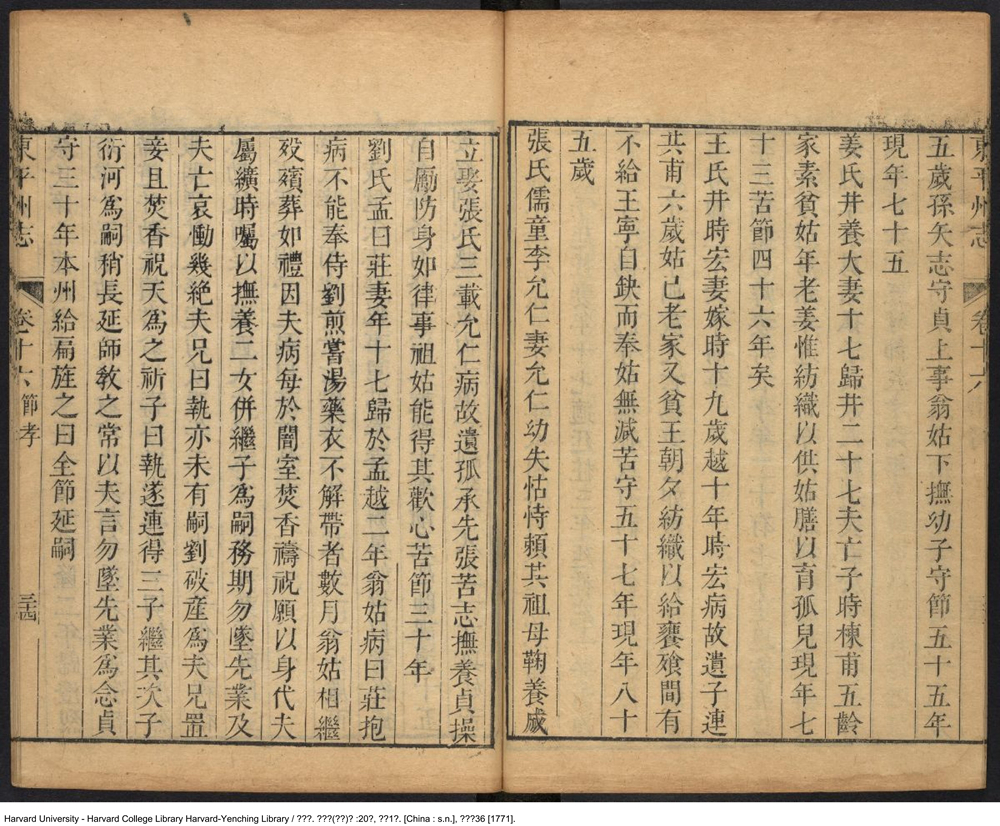 東平州志 卷十六
五歲孫矢志守貞上事翁姑下撫幼子守節五十五年
現年七十五
姜氏井養大妻十七歸井二十七夫亡子時棟甫五齡
家素貧姑年老姜惟紡織以供姑膳以育孤兒現年七
十三苦節四十六年矣
王氏井時宏妻嫁時十九歲越十年時宏病故遺子連
共甫六歲姑已老家又貧王朝夕紡織以給饔飱間有
不給王寧自缺而奉姑無減苦守五十七年現年八十
五歲
張氏儒童李允仁妻允仁幼失怙恃賴其祖母鞠養成
立娶張氏三載允仁病故遺孤承先張苦志撫養貞操
自勵防身如律事祖姑能得其歡心苦節三十年
劉氏孟曰莊妻年十七歸於孟越二年翁姑病曰莊抱
病不能奉侍劉煎嘗湯藥衣不解帶者數月翁姑相繼
歿殯葬如禮因夫病每於闇室焚香禱祝願以身代夫
屬纊時囑以撫養二女併繼子爲嗣務期勿墜先業及
夫亡哀慟幾絶夫兄曰執亦未有嗣劉破產爲夫兄置
妾且焚香祝天爲之祈子曰執遂連得三子繼其次子
衍河爲嗣稍長延師敎之常以夫言勿墜先業爲念貞
守三十年本州給扁旌之曰全節延嗣
東平州志 卷十六 節孝 三十四
Harvard University - Harvard College Library Harvard-Yenching Library / ???. ???(??)? :20?, ??1?. [China : s.n.], ???36 [1771].